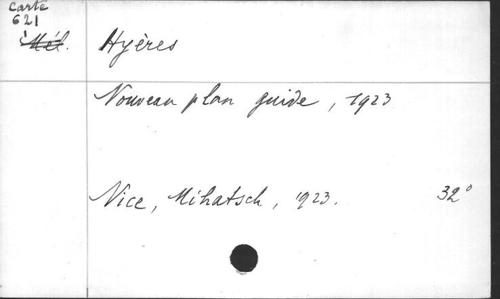 Carte
621
Mél. Hyères
Nouveau plan guide, 1923
Nice, Mihatsch, 1923. 32°